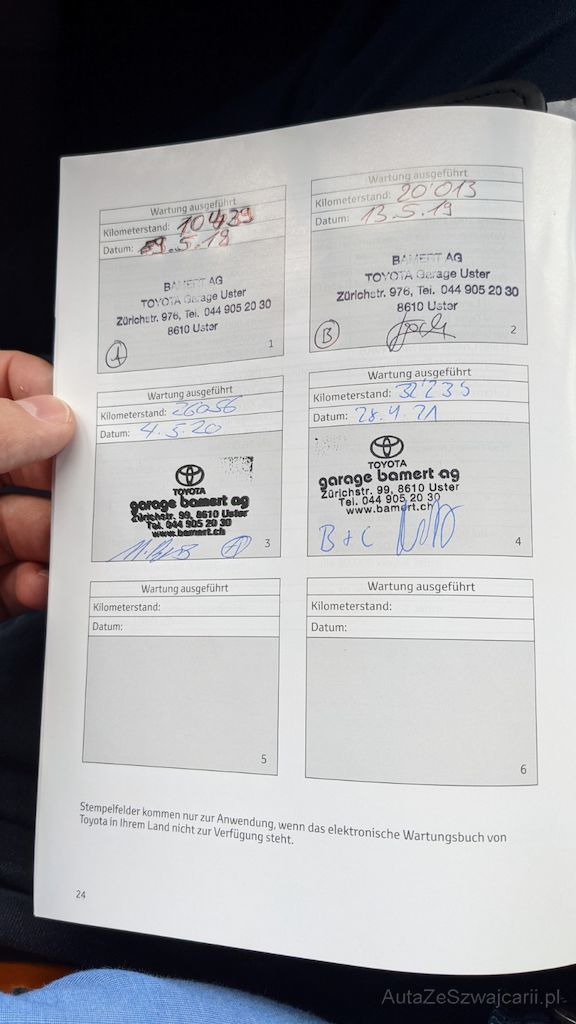 Wartung ausgeführt
Kilometerstand: 10439
Datum: .5.18
BAMERT AG
TOYOTA Garage Uster
Zürichstr. 976, Tel. 044 905 20 30
8610 Uster
A
1
Wartung ausgeführt
Kilometerstand: 20'013
Datum: 13.5.19
BAMERT AG
TOYOTA Garage Uster
Zürichstr. 976, Tel. 044 905 20 30
8610 Uster
B
2
Wartung ausgeführt
Kilometerstand: 26056
Datum: 4.5.20
TOYOTA
garage bamert ag
Zürichstr. 99, 8610 Uster
Tel. 044 905 20 30
www.bamert.ch
A
3
Wartung ausgeführt
Kilometerstand: 32'235
Datum: 28.4.21
TOYOTA
garage bamert ag
Zürichstr. 99, 8610 Uster
Tel. 044 905 20 30
www.bamert.ch
B + C
4
Wartung ausgeführt
Kilometerstand:
Datum:
5
Wartung ausgeführt
Kilometerstand:
Datum:
6
Stempelfelder kommen nur zur Anwendung, wenn das elektronische Wartungsbuch von
Toyota in Ihrem Land nicht zur Verfügung steht.
24
AutaZeSzwajcarii.pl